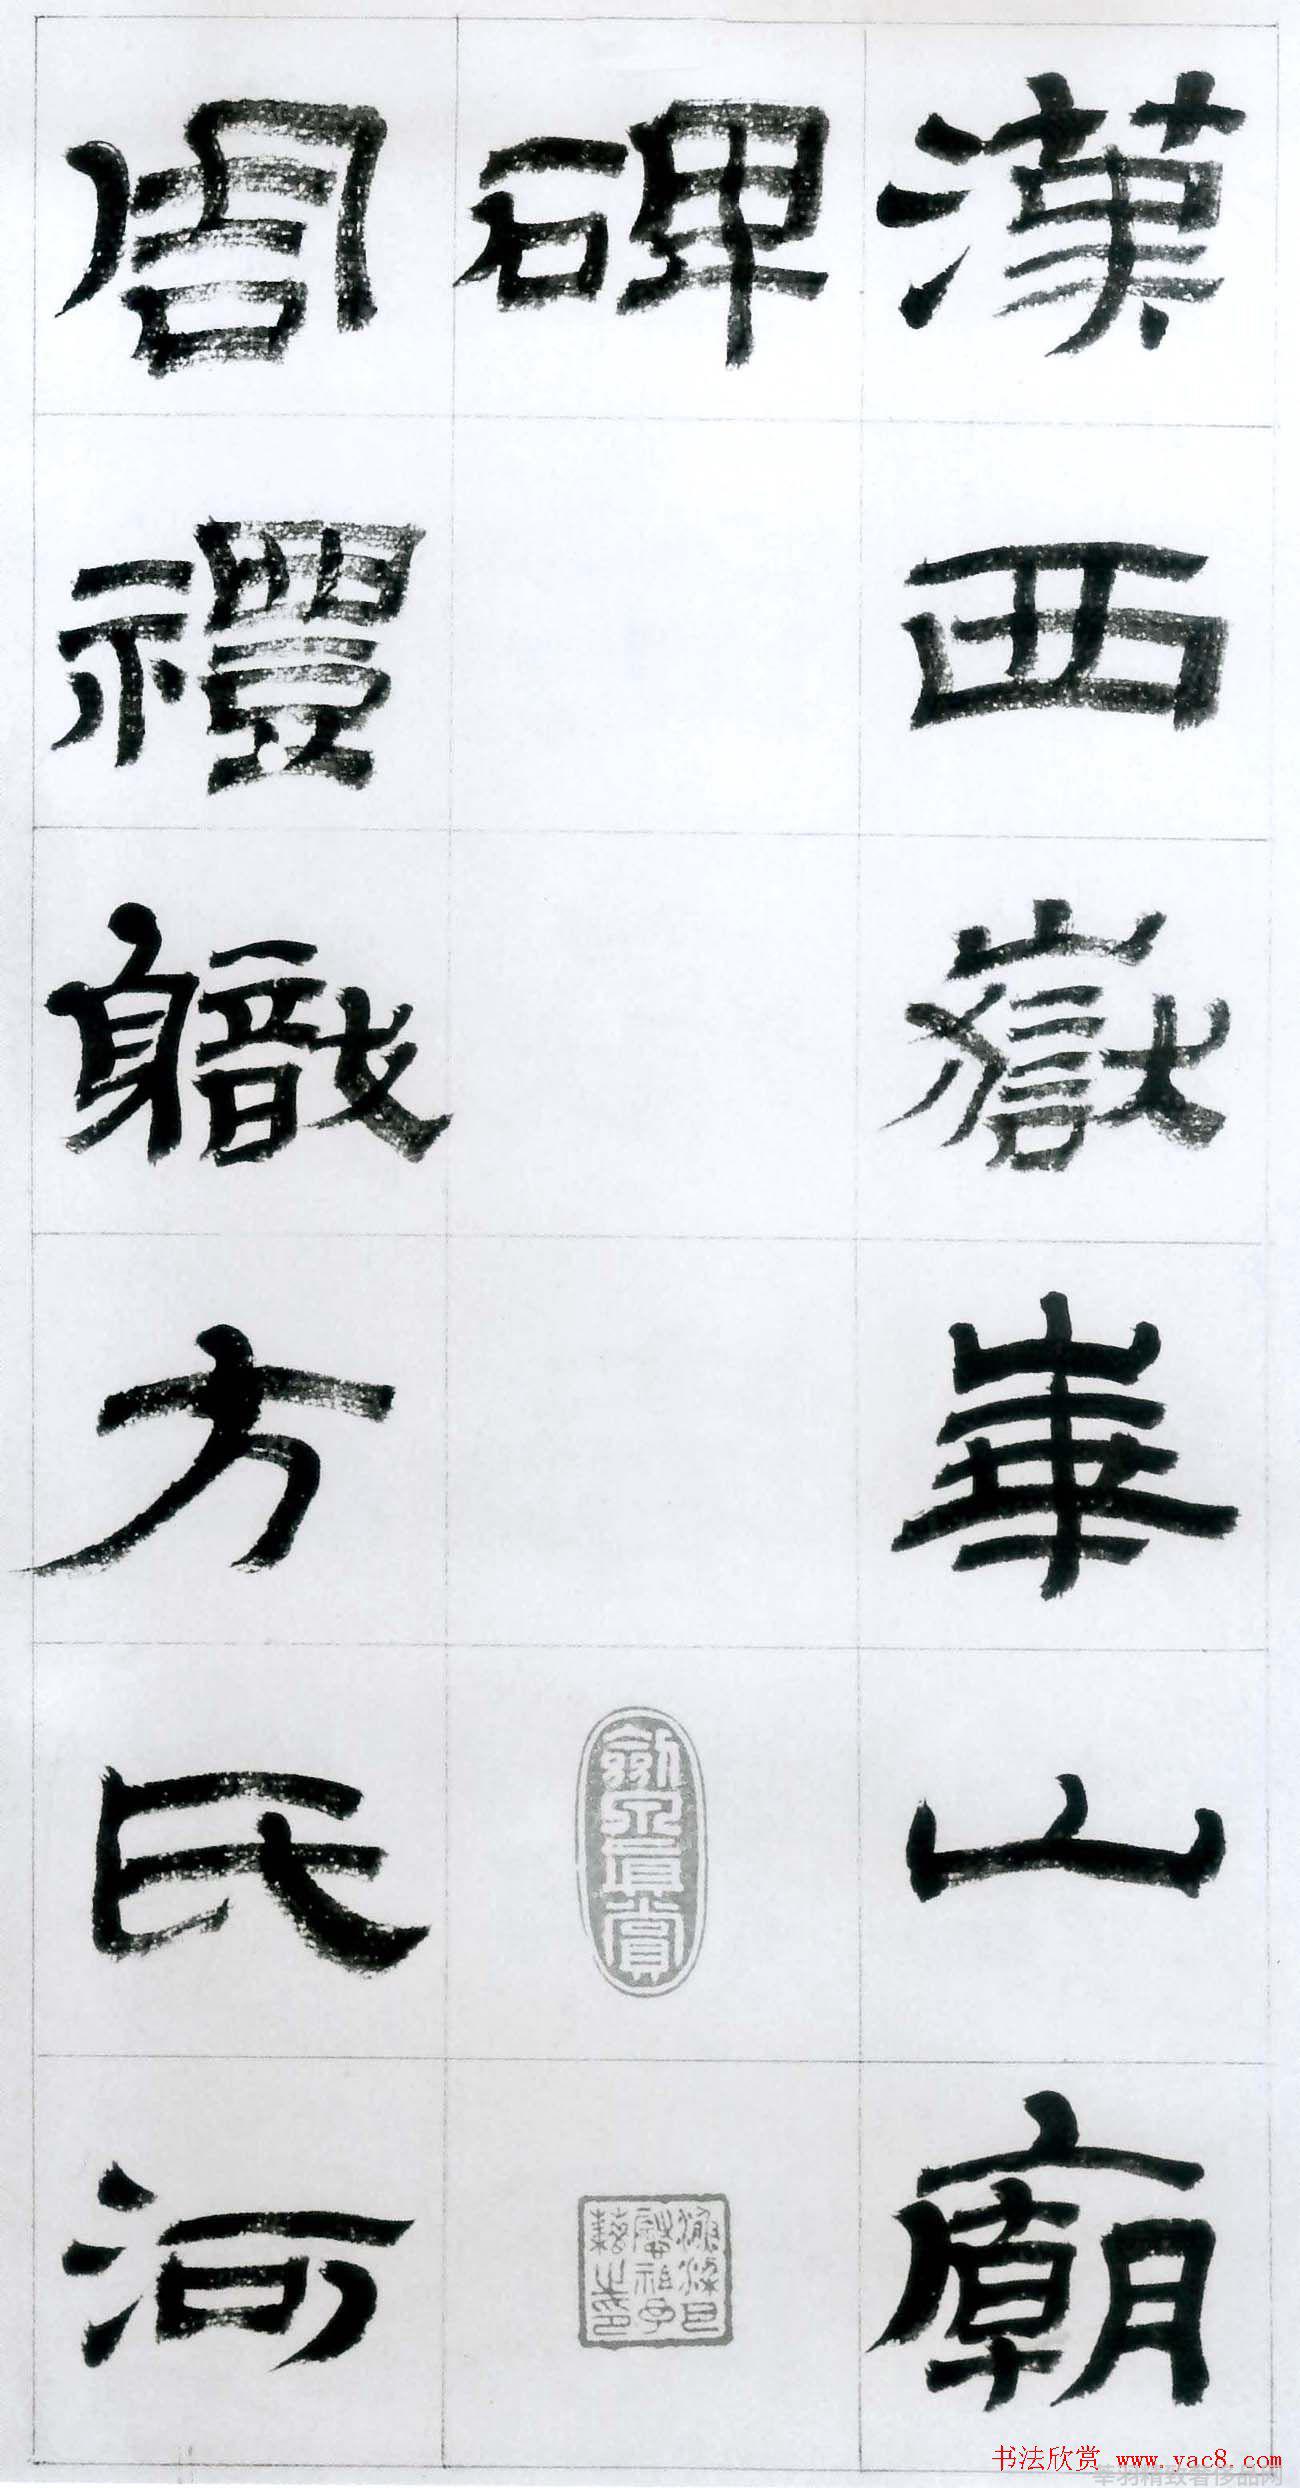 漢西嶽華山廟
碑
周禮職方氏河
書法欣赏 www.yac8.com